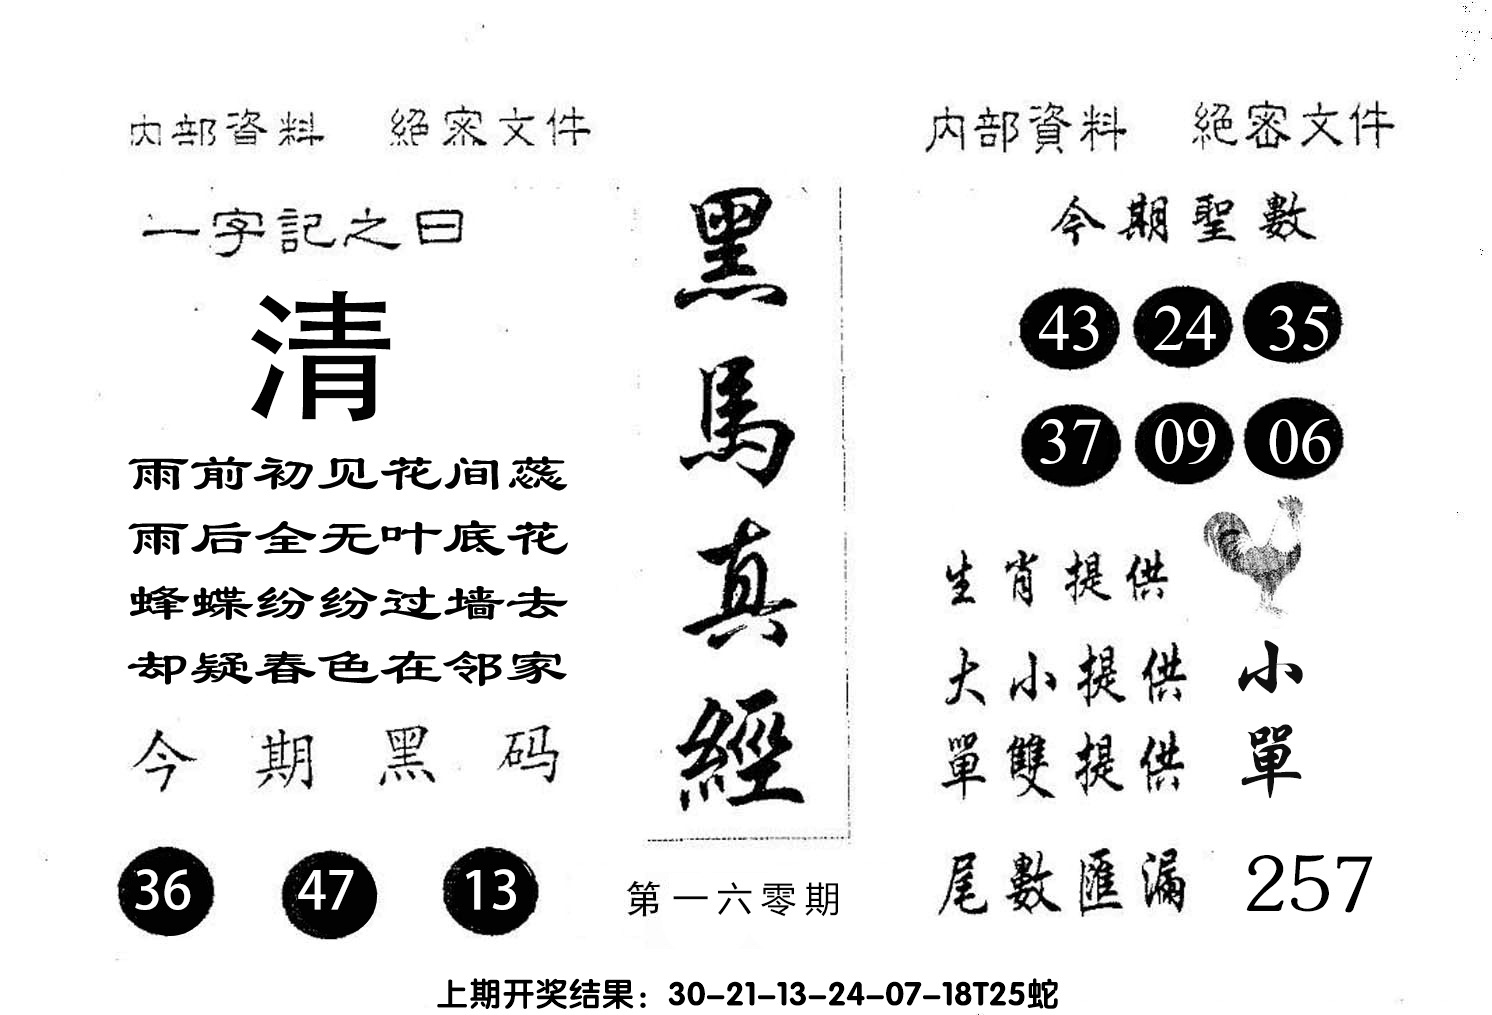 内部資料 絕密文件
一字記之曰
清
雨前初见花间蕊
雨后全无叶底花
蜂蝶纷纷过墙去
却疑春色在邻家
今期黑码
36 47 13
黑馬真經
第一六零期
内部資料 絕密文件
今期聖數
43 24 35
37 09 06
生肖提供
大小提供 小
單雙提供 單
尾數匯漏 257
上期开奖结果：30-21-13-24-07-18T25蛇